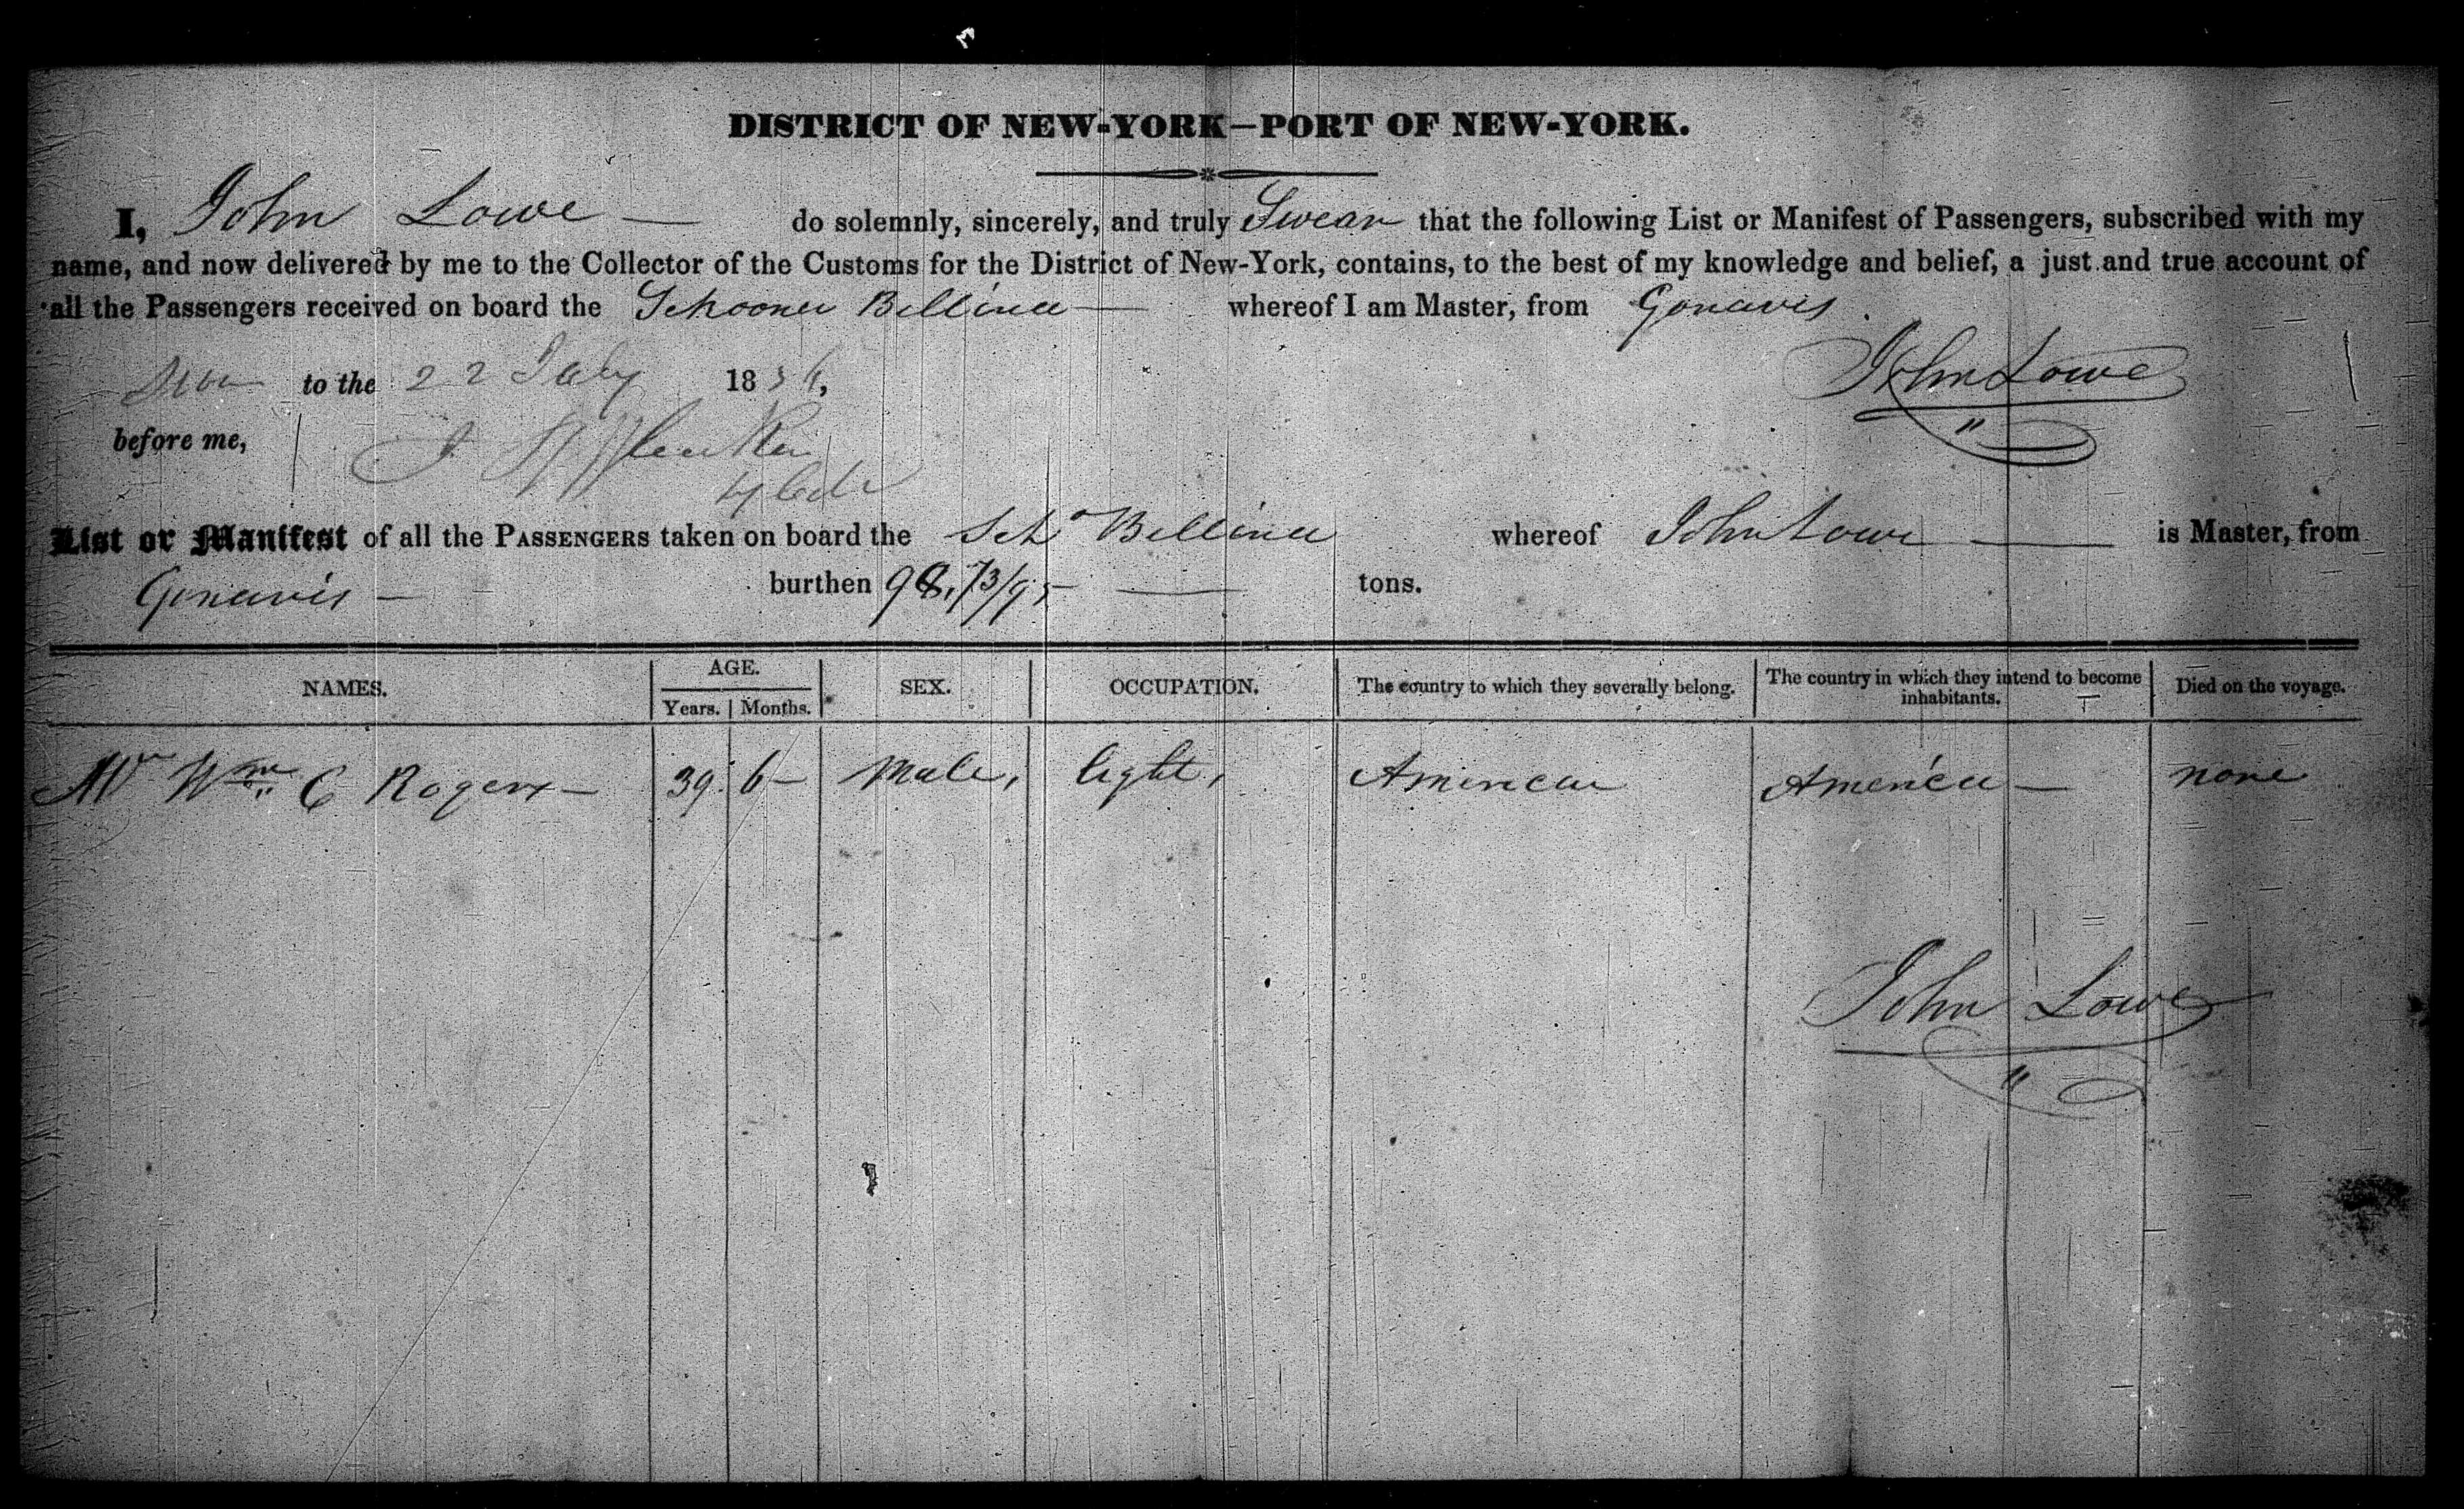 DISTRICT OF NEW-YORK—PORT OF NEW-YORK.
I, John Lowe — do solemnly, sincerely, and truly Swear that the following List or Manifest of Passengers, subscribed with my
name, and now delivered by me to the Collector of the Customs for the District of New-York, contains, to the best of my knowledge and belief, a just and true account of
all the Passengers received on board the Schooner Bellina — whereof I am Master, from Gonavis
to the 22 July 18
John Lowe
before me,
List or Manifest of all the PASSENGERS taken on board the Schr Bellina whereof John Lowe — is Master, from
Gonavis — burthen 98,73/95 — tons.
NAMES. AGE. Years. Months. SEX. OCCUPATION. The country to which they severally belong. The country in which they intend to become inhabitants. Died on the voyage.
Mr Wm C Rogers — 39. 6 — Male, light, American America — none
John Lowe